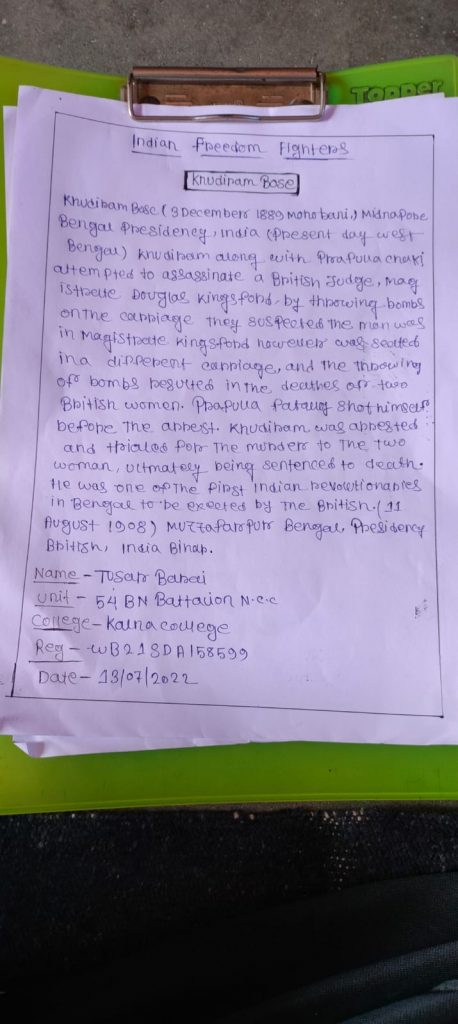 Topper
Indian Freedom Fighters
Khudiram Bose
Khudiram Bose (3 December 1889 Mohobani,) Midnapore
Bengal Presidency, India (Present day west
Bengal) Khudiram along with Prafulla Chaki
attempted to assassinate a British Judge, Mag
istrate Douglas Kingsford, by throwing bombs
on the carriage they suspected the man was
in Magistrate Kingsford however was seated
in a different carriage, and the throwing
of bombs resulted in the deathes of two
British women. Prafulla fatally shot himself
before The arrest. Khudiram was arrested
and trialed for The murders to The two
woman, ultmately being sentenced to death.
He was one of The first Indian revolutionaries
in Bengal to be exected by The British. (11
August 1908) Muzzafarpur Bengal, Presidency
British, India Bihar.
Name - Tusar Barai
Unit - 54 BN Battalion N.c.c
College - Kalna college
Reg - WB21SDA158599
Date - 13/07/2022